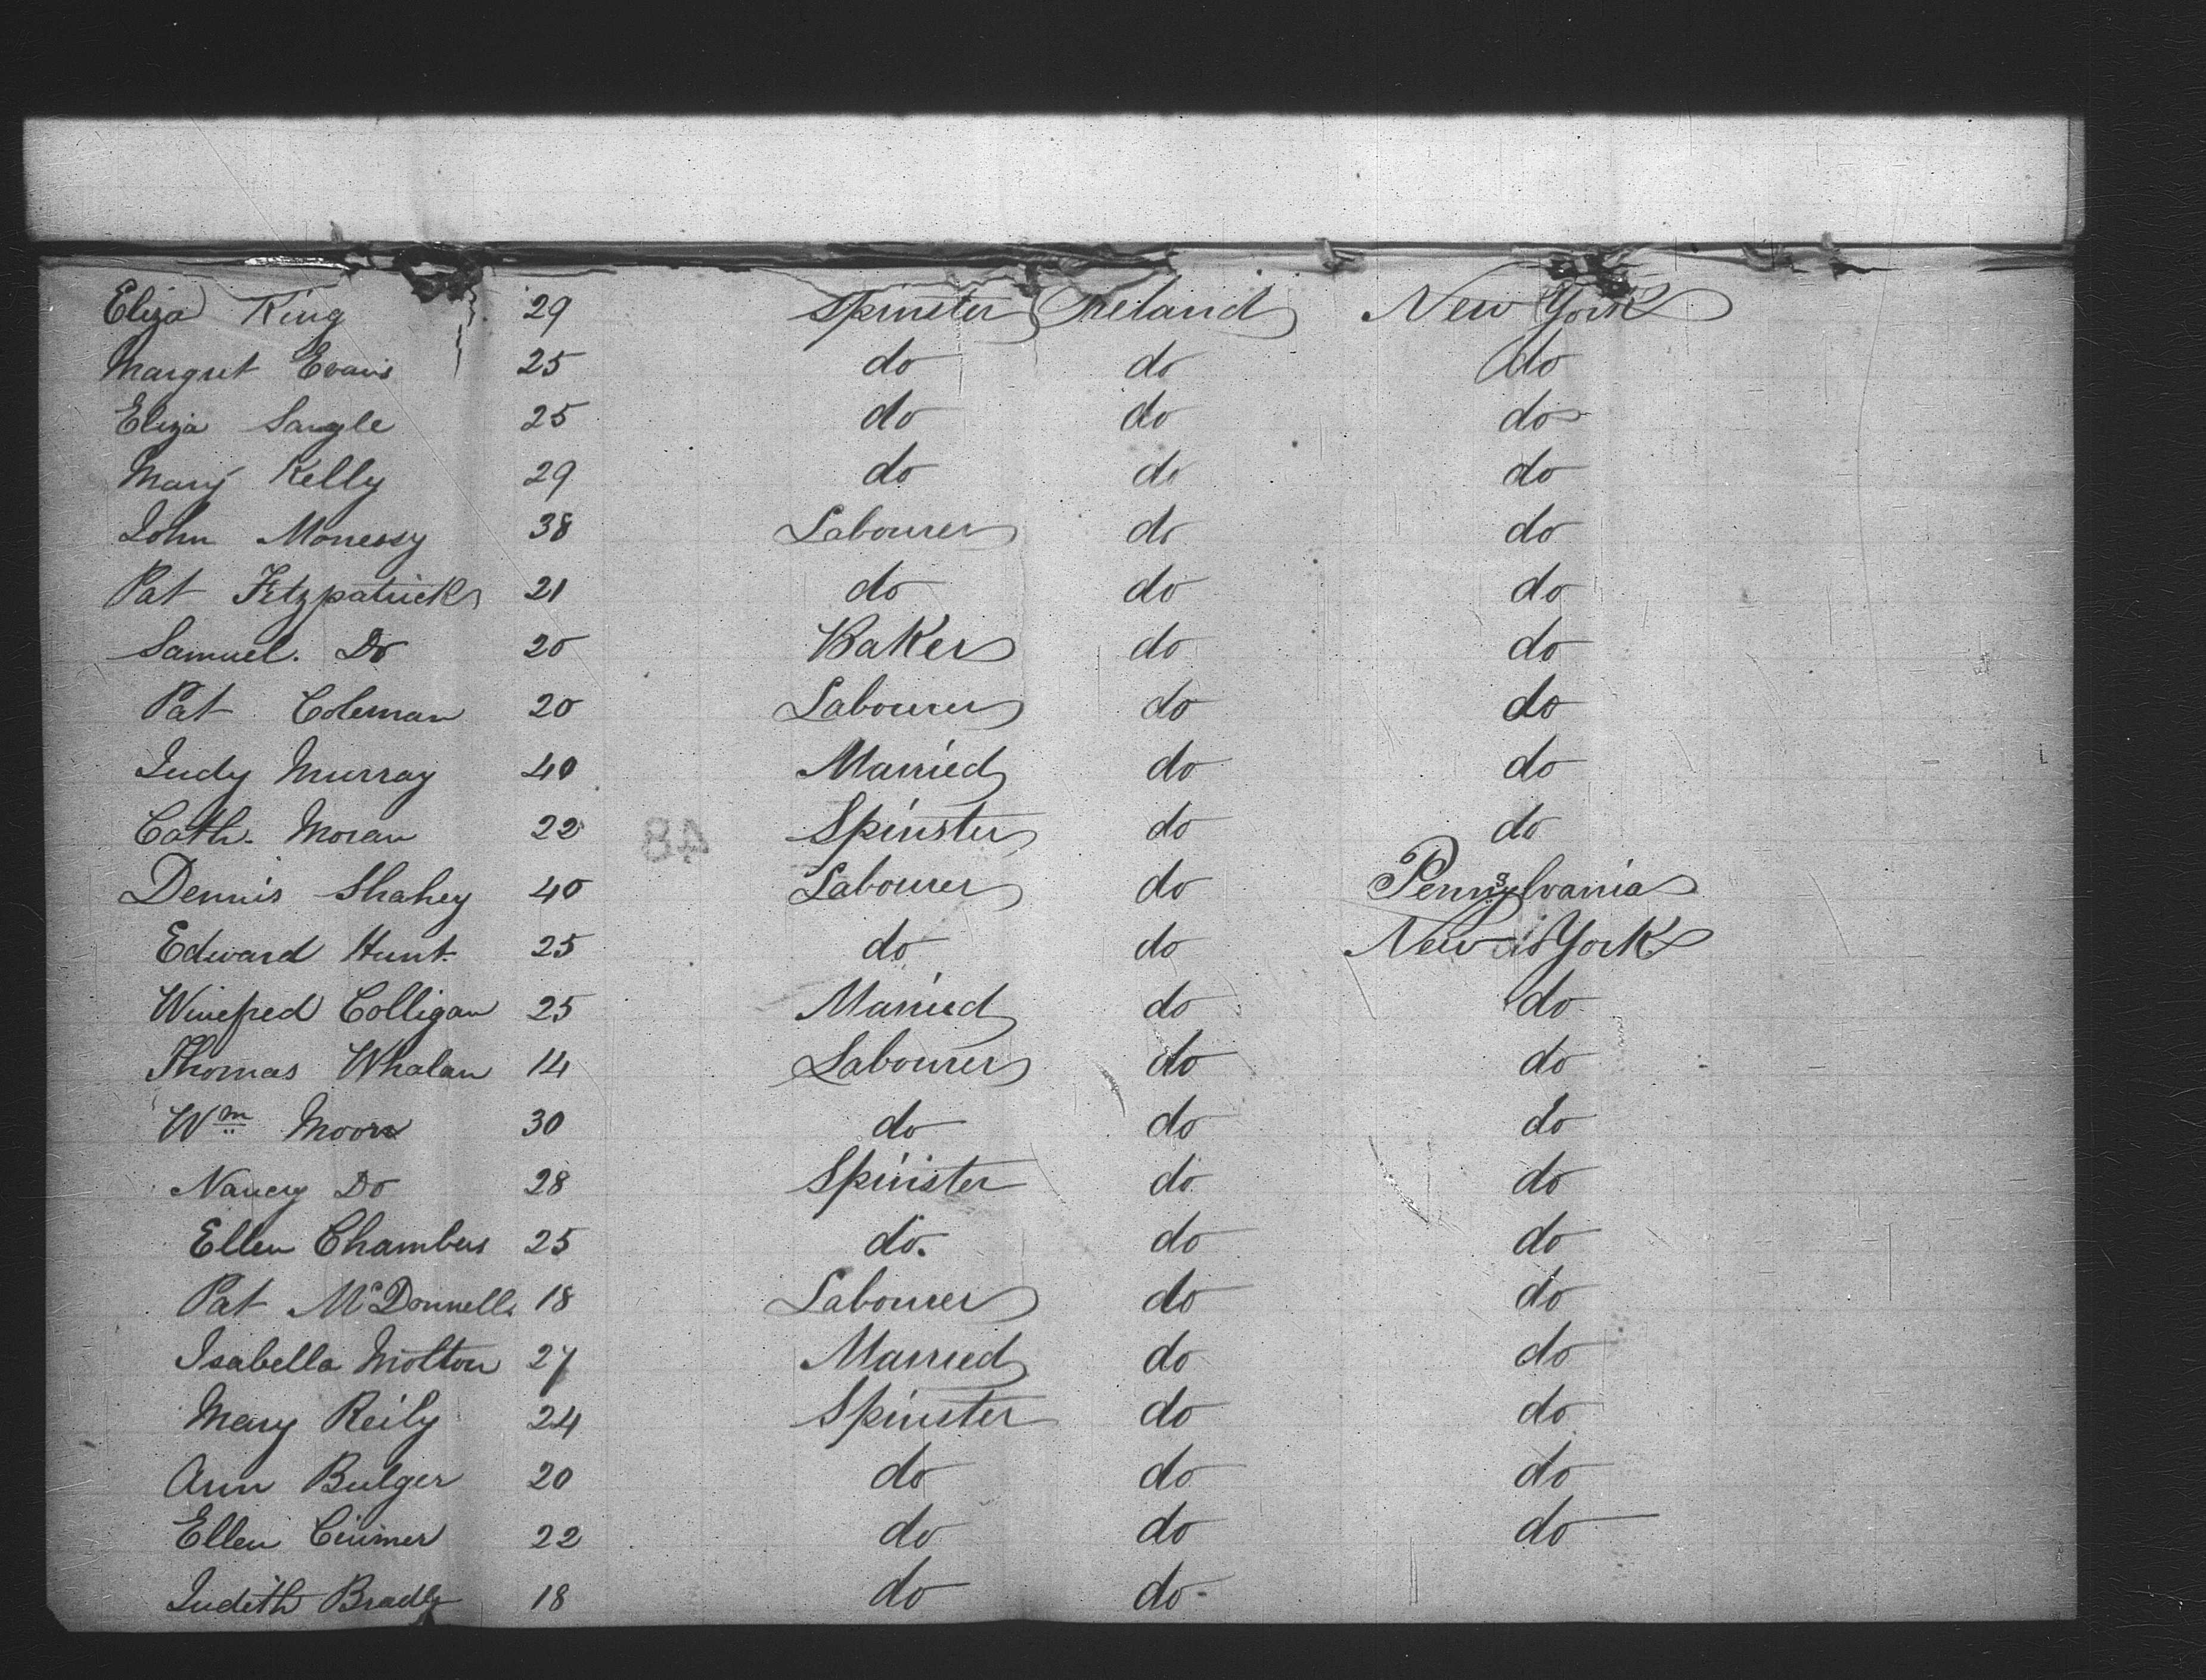 Eliza King 29 Spinster Ireland New York
Margret Evans 25 do do do
Eliza Sangle 25 do do do
Mary Kelly 29 do do do
John Monessy 38 Labourer do do
Pat Fitzpatrick 21 do do do
Samuel. Do 20 Baker do do
Pat Coleman 20 Labourer do do
Judy Murray 40 Married do do
Cath. Moran 22 Spinster do do
48
Dennis Shahey 40 Labourer do Pennsylvania
Edward Hunt 25 do do New York
Winefred Colligan 25 Married do do
Thomas Whalan 14 Labourer do do
Wm Moore 30 do do do
Nancy Do 28 Spinster do do
Ellen Chambers 25 do. do do
Pat McDonnell 18 Labourer do do
Isabella Molton 27 Married do do
Mary Reily 24 Spinster do do
Ann Bulger 20 do do do
Ellen 22 do do do
Judith Bradly 18 do do